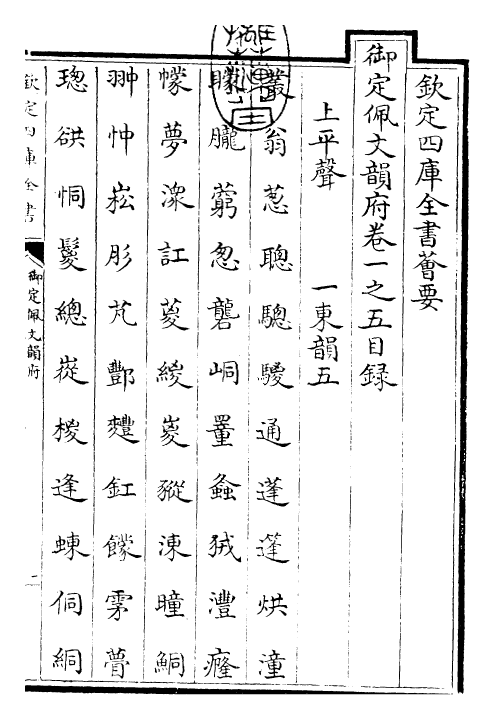 欽定四庫全書薈要
御定佩文韻府卷一之五目録
上平聲 一東韻五
叢翁葱聰驄騣通蓬篷烘潼
朦朧藭怱礱峒罿螽狨灃癃
幪夢潨訌葼緵嵏豵涷曈鮦
翀忡崧肜芃酆麷釭饛雺瞢
璁谼恫鬉總嵸椶逢蝀侗絧
欽定四庫全書 御定佩文韻府